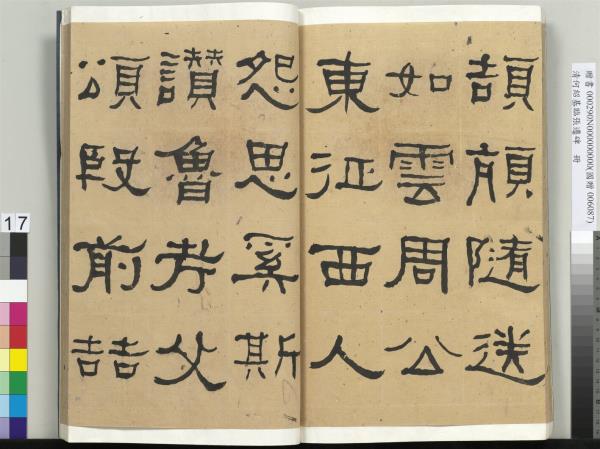 頡頏隨送
如雲周公
東征西人
怨思奚斯
讚魯考父
頌殷前喆
贈書 000290N000000000(國贈 006087)
清何紹基臨張遷碑 冊
17